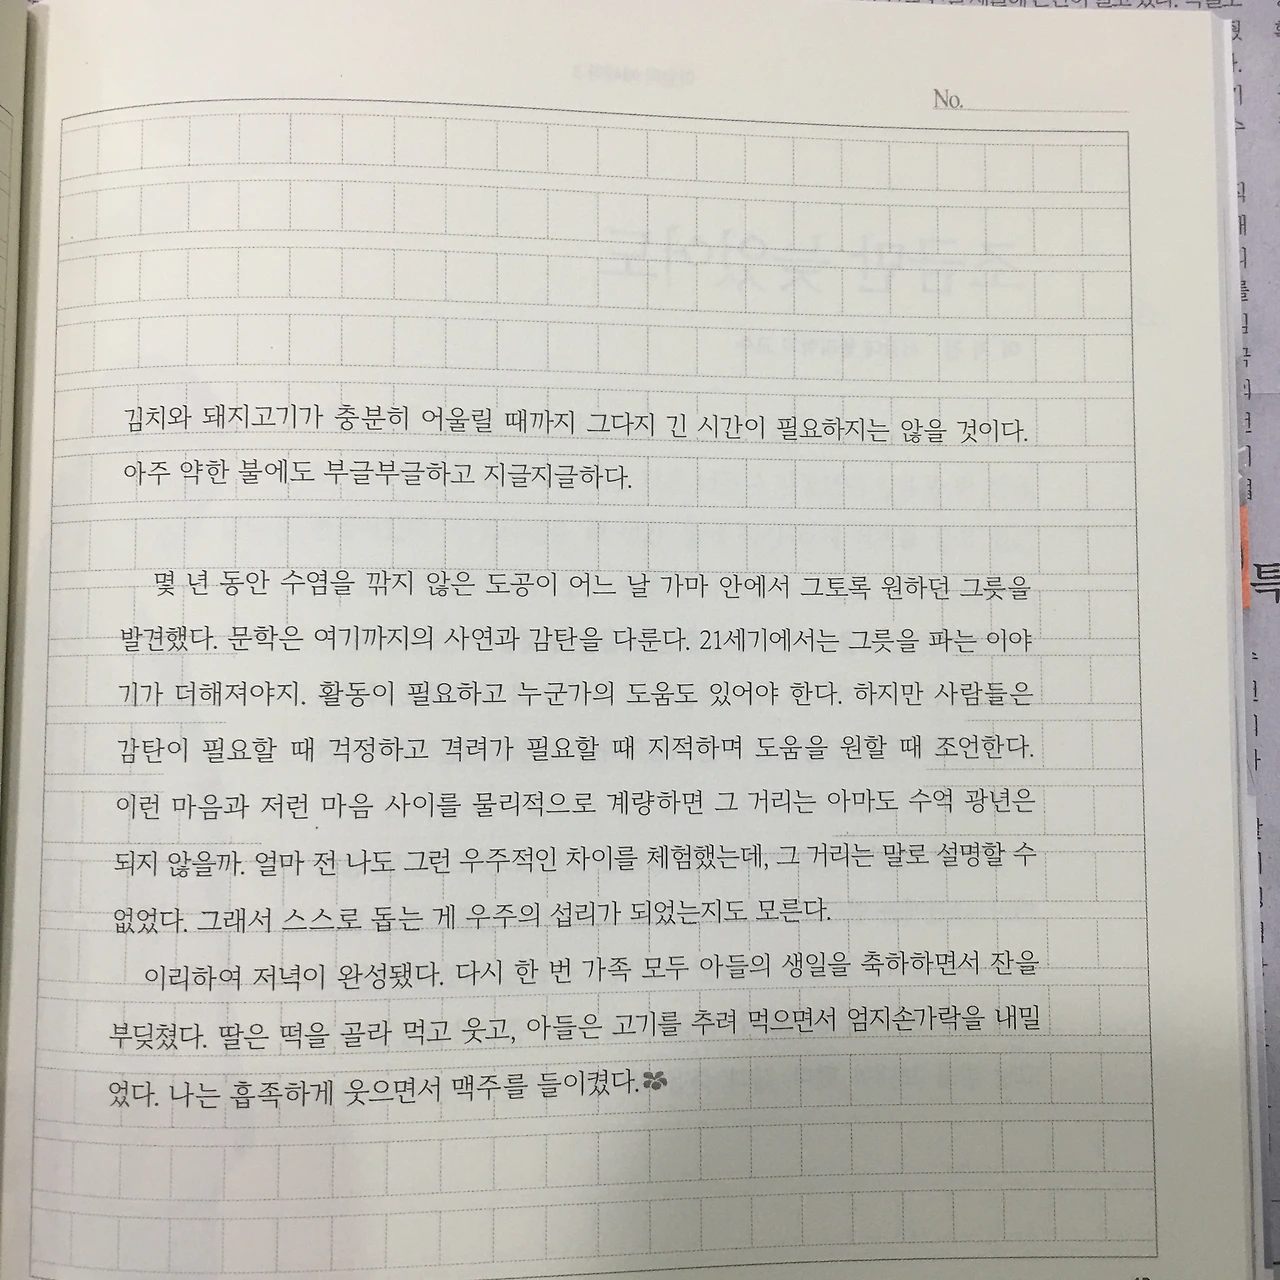 No.
김치와 돼지고기가 충분히 어울릴 때까지 그다지 긴 시간이 필요하지는 않을 것이다.
아주 약한 불에도 부글부글하고 지글지글하다.
몇 년 동안 수염을 깎지 않은 도공이 어느 날 가마 안에서 그토록 원하던 그릇을
발견했다. 문학은 여기까지의 사연과 감탄을 다룬다. 21세기에서는 그릇을 파는 이야
기가 더해져야지. 활동이 필요하고 누군가의 도움도 있어야 한다. 하지만 사람들은
감탄이 필요할 때 걱정하고 격려가 필요할 때 지적하며 도움을 원할 때 조언한다.
이런 마음과 저런 마음 사이를 물리적으로 계량하면 그 거리는 아마도 수억 광년은
되지 않을까. 얼마 전 나도 그런 우주적인 차이를 체험했는데, 그 거리는 말로 설명할 수
없었다. 그래서 스스로 돕는 게 우주의 섭리가 되었는지도 모른다.
이리하여 저녁이 완성됐다. 다시 한 번 가족 모두 아들의 생일을 축하하면서 잔을
부딪쳤다. 딸은 떡을 골라 먹고 웃고, 아들은 고기를 추려 먹으면서 엄지손가락을 내밀
었다. 나는 흡족하게 웃으면서 맥주를 들이켰다.